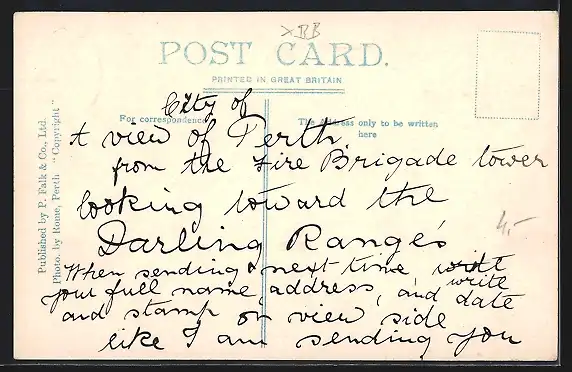 XRB
POST CARD.
PRINTED IN GREAT BRITAIN.
For correspondence
The Address only to be written
here
Published by P. Falk & Co., Ltd.
Photo. by Rome, Perth "Copyright"
City of
A view of Perth
from the Fire Brigade tower
looking toward the
Darling Range's
When sending next time
write
your full name, address, and date
and stamp on view side
like I am sending you
4,-